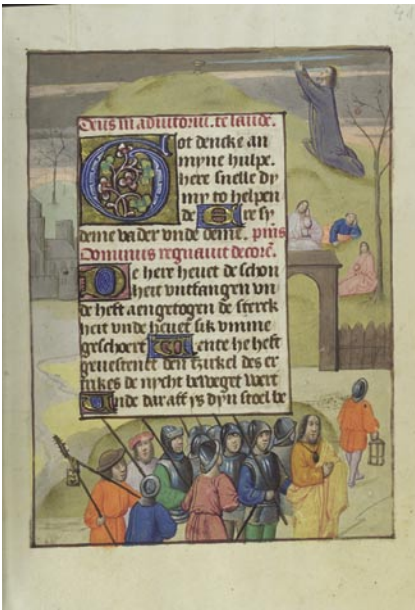 Deus in adiutoriu. te laude.
Got dencke an
myne hulpe.
here snelle dy
my to helpen
de Ere sy
deme vader vnde deme. pms
Dominus regnauit decore.
De here heuet de schon
heit vntfangen vn
de heft aengetogen de sterck
heit vnde heuet sik vmme
geschoert Wente he heft
geuestent den tzirkel des er
trikes de nycht beweget wert
Unde dar aff ys dyn stoel be